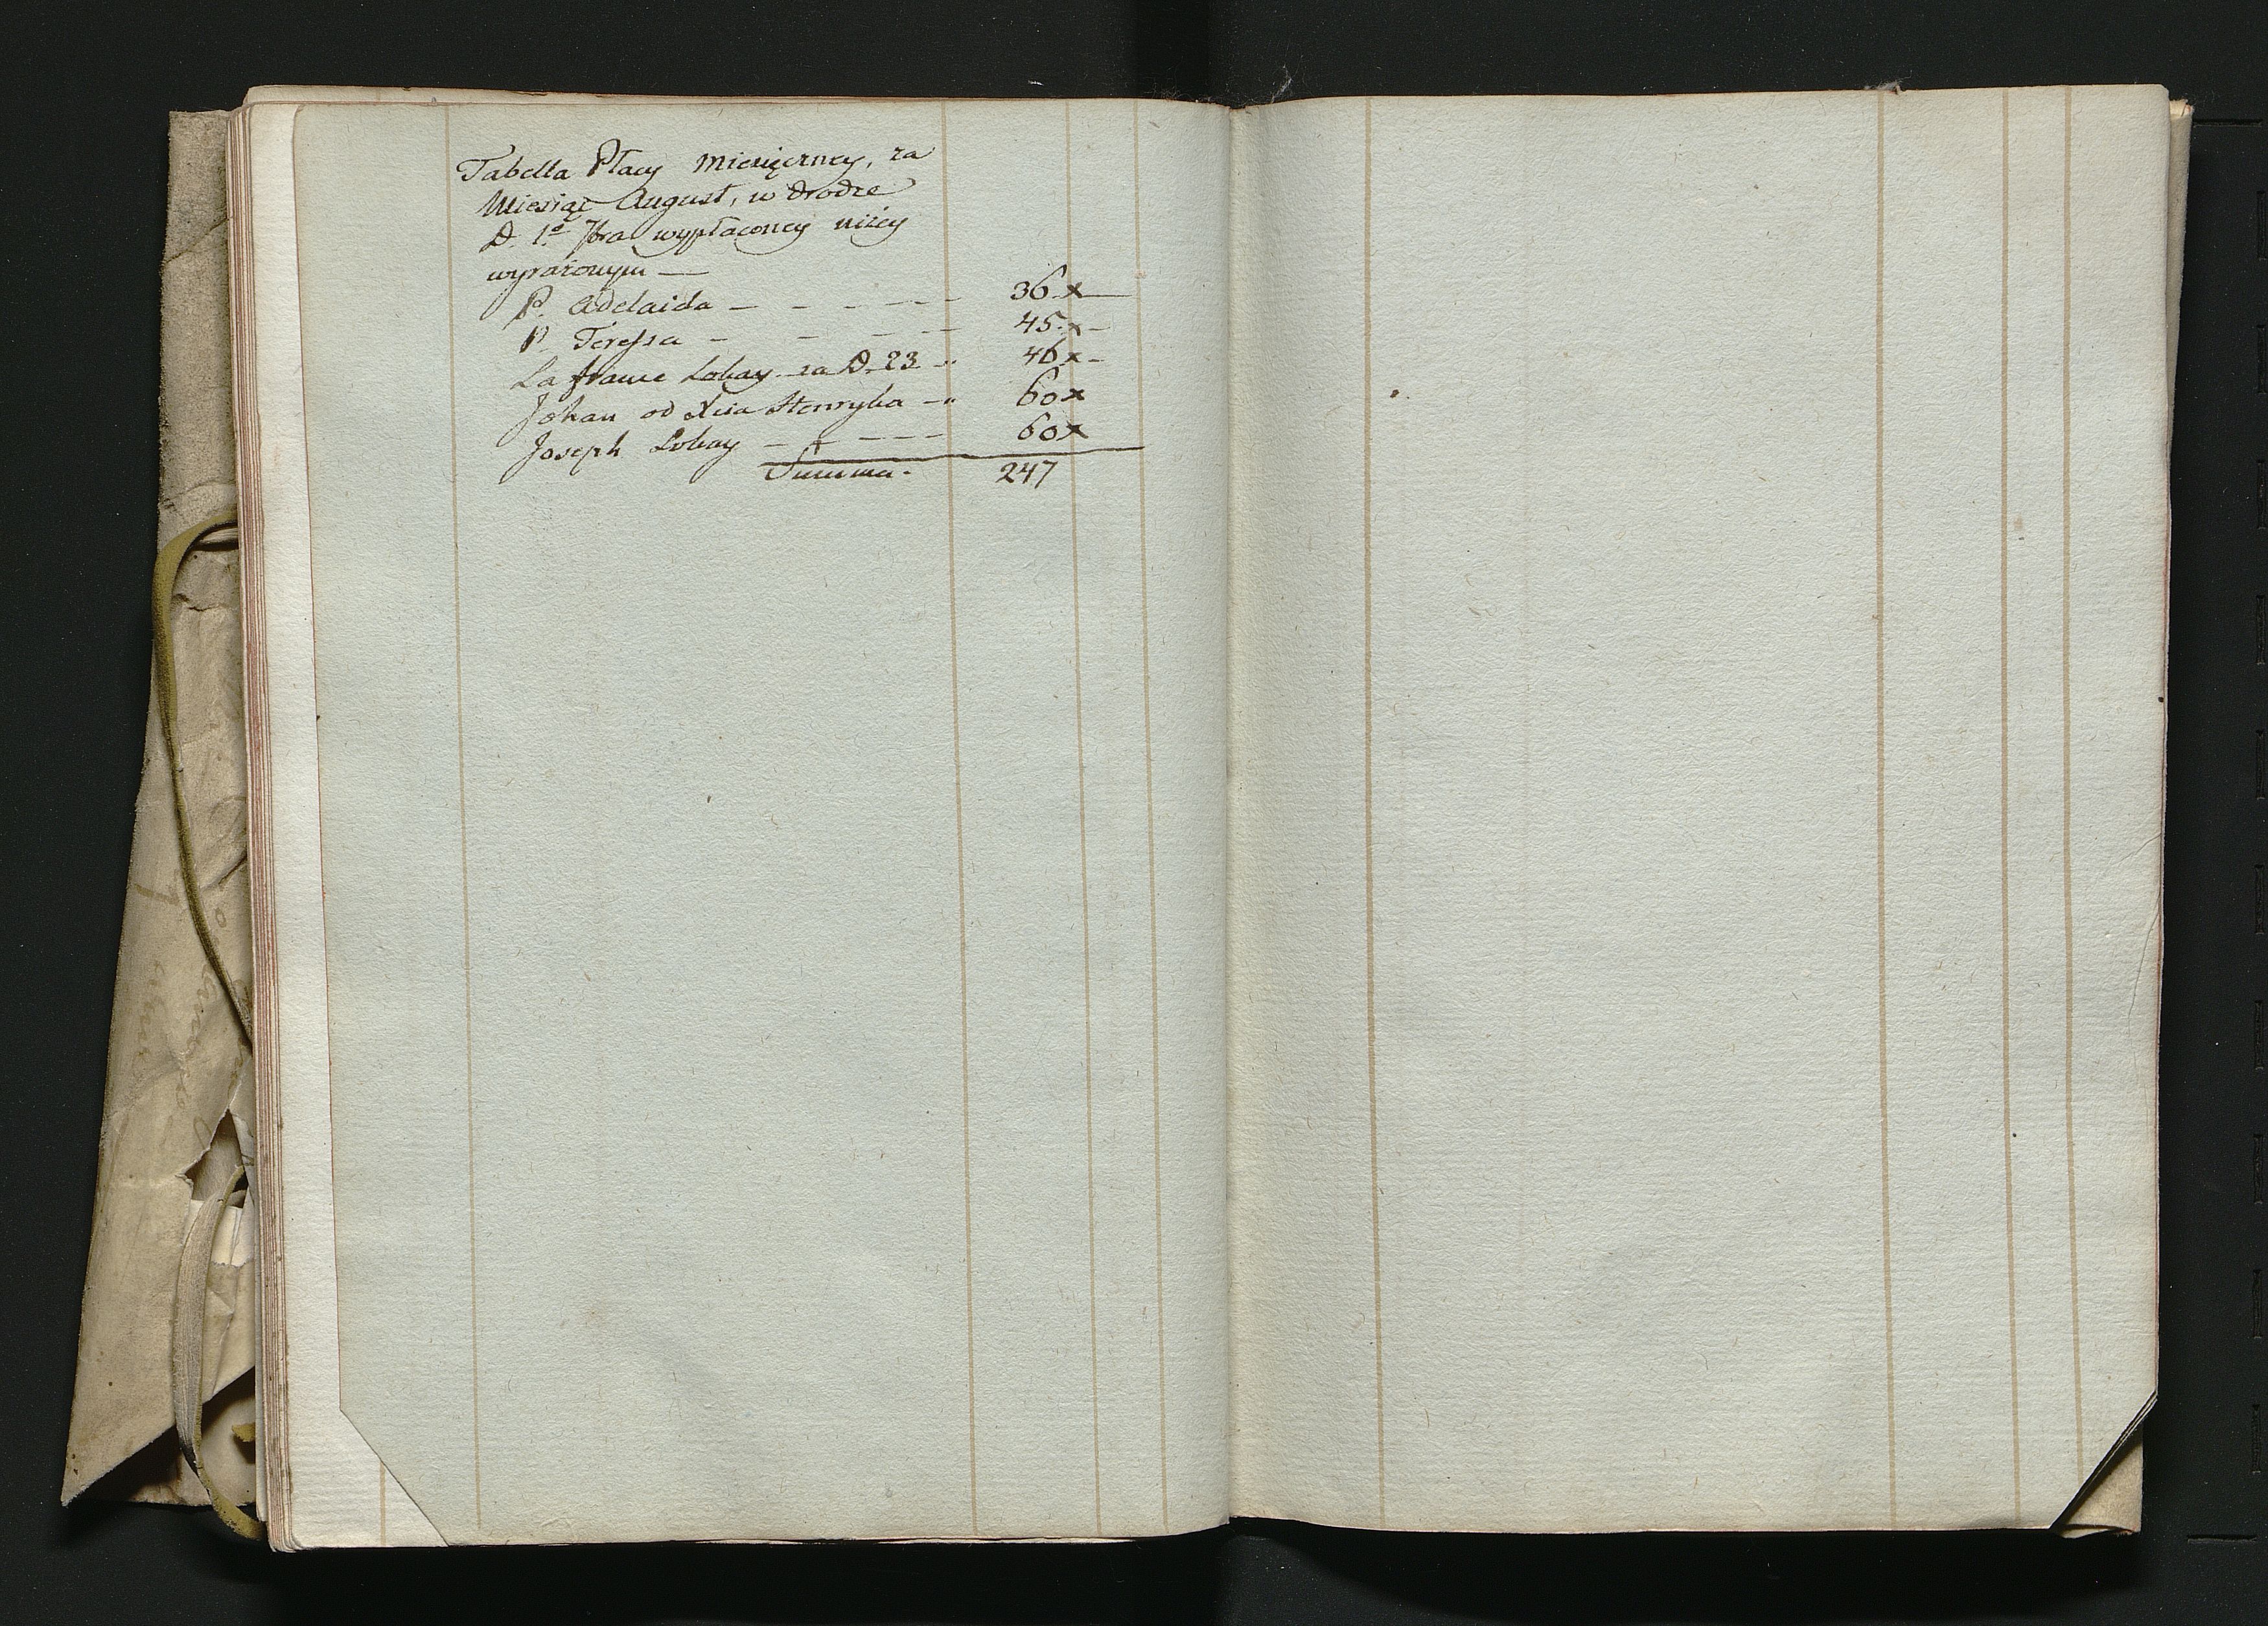 Tabella Płacy Miesięczney, za
Miesiąc August, w drodze
D. 1º 7bra wypłaconey niżey
wyrażonym —
P. Adelaida — — — — — — 36 x —
P. Teressa — — — — 45. x —
La france Lokay za D. 23 — " 46 x —
Johan od Xcia Henryka — " 60 x
Joseph Lokay — — — — — 60 x
Summa. 247